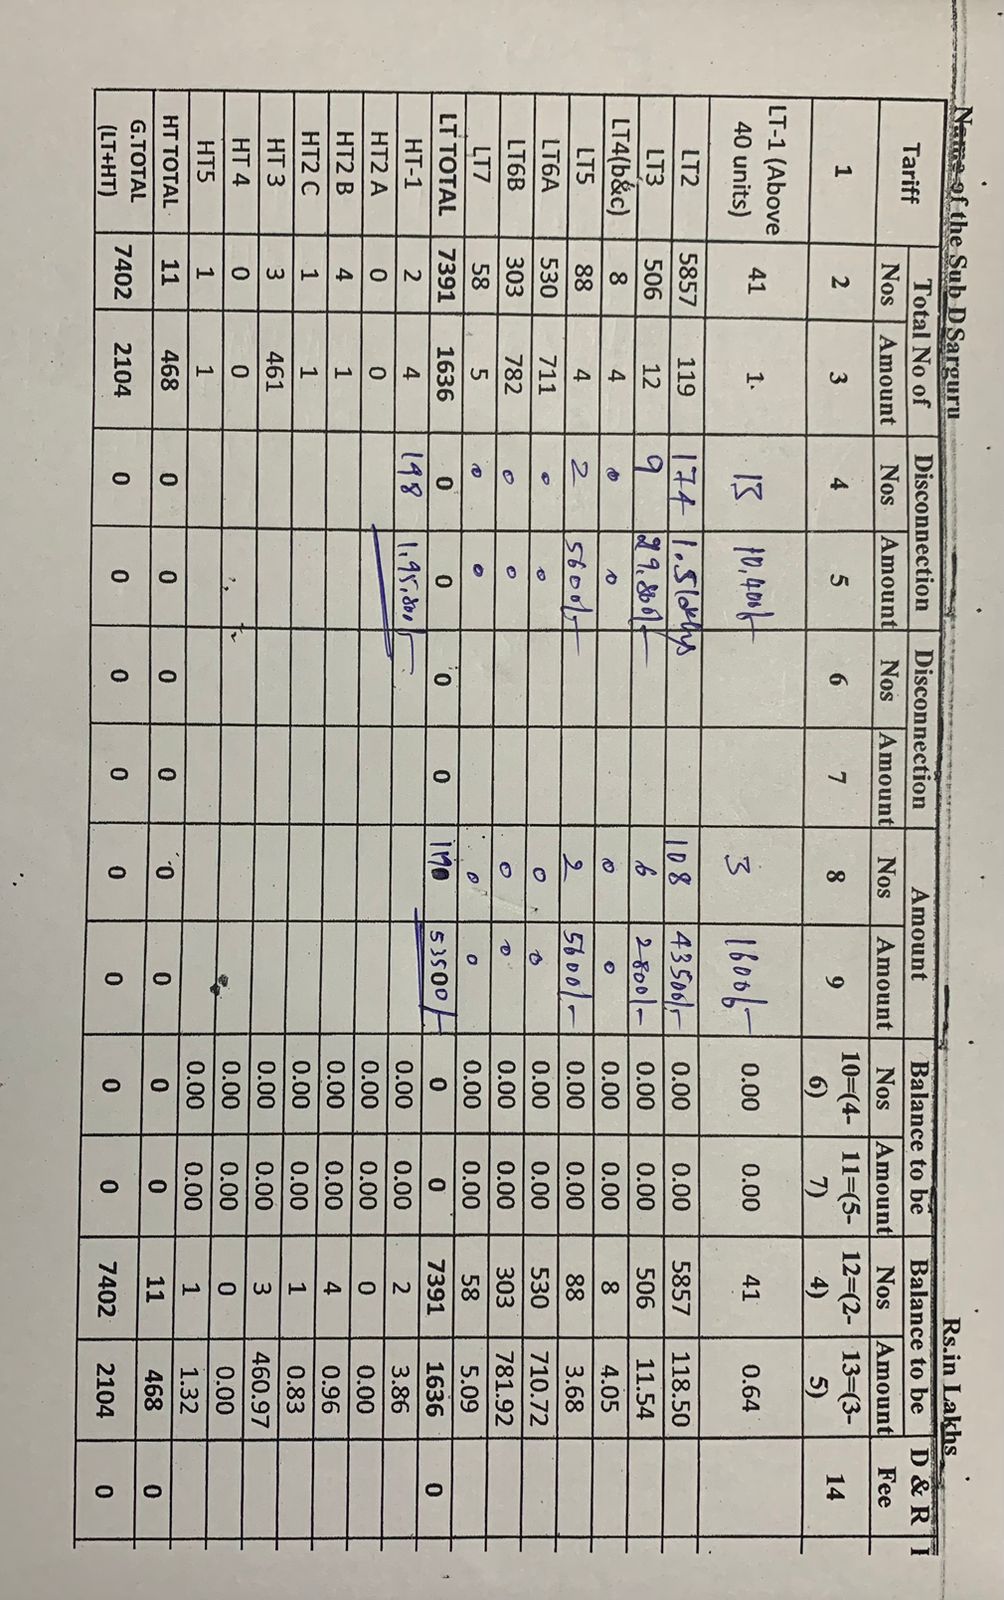 Name of the Sub D Sarguru Rs.in Lakhs
Tariff Total No of Disconnection Disconnection Amount Balance to be Balance to be D & R I
Nos Amount Nos Amount Nos Amount Nos Amount Nos Amount Nos Amount Fee
1 2 3 4 5 6 7 8 9 10=(4-6) 11=(5-7) 12=(2-4) 13=(3-5) 14
LT-1 (Above 40 units) 41 1. 13 10,400/- 3 1600/- 0.00 0.00 41 0.64
LT2 5857 119 174 1.5lakhs 108 43500/- 0.00 0.00 5857 118.50
LT3 506 12 9 29,800/- 6 2800/- 0.00 0.00 506 11.54
LT4(b&c) 8 4 0 0 0 0 0.00 0.00 8 4.05
LT5 88 4 2 5600/- 2 5600/- 0.00 0.00 88 3.68
LT6A 530 711 0 0 0 0 0.00 0.00 530 710.72
LT6B 303 782 0 0 0 0 0.00 0.00 303 781.92
LT7 58 5 0 0 0 0 0.00 0.00 58 5.09
LT TOTAL 7391 1636 0 0 0 0 53500/- 0 0 7391 1636 0
HT-1 2 4 198 1,95,800/- 0.00 0.00 2 3.86
HT2 A 0 0 0.00 0.00 0 0.00
HT2 B 4 1 0.00 0.00 4 0.96
HT2 C 1 1 0.00 0.00 1 0.83
HT 3 3 461 0.00 0.00 3 460.97
HT 4 0 0 0.00 0.00 0 0.00
HT5 1 1 0.00 0.00 1 1.32
HT TOTAL 11 468 0 0 0 0 0 0 0 0 11 468 0
G.TOTAL (LT+HT) 7402 2104 0 0 0 0 0 0 0 0 7402 2104 0